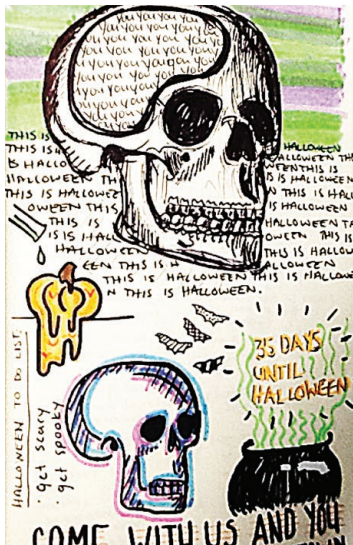 You You You You
You You You You You
You You You You
You You You You
THIS IS HALLOWEEN
THIS IS HALLOWEEN THIS
IS HALLO WEEN THIS IS
HALLOWEEN TH IS IS HALLOWEEN
THIS IS HALLOWE N THIS IS HALL
OWEEN THIS IS HALLOWEEN
THIS IS HALLOWEEN TH
IS IS HAL OWEEN THIS IS
HALLOWEEN THIS IS HALLOW
EEN THIS IS H ALLOWEEN
THIS IS HALLOWEEN THIS IS HALLOWE
N THIS IS HALLOWEEN.
35 DAYS
UNTIL
HALLOWEEN
HALLOWEEN TO DO LIST:
· get scary
· get spooky
COME WITH US AND YOU